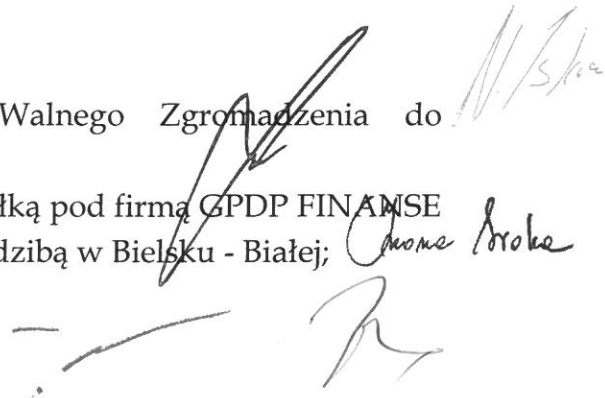 Walnego Zgromadzenia do
łką pod firmą GPDP FINANSE
dzibą w Bielsku - Białej;